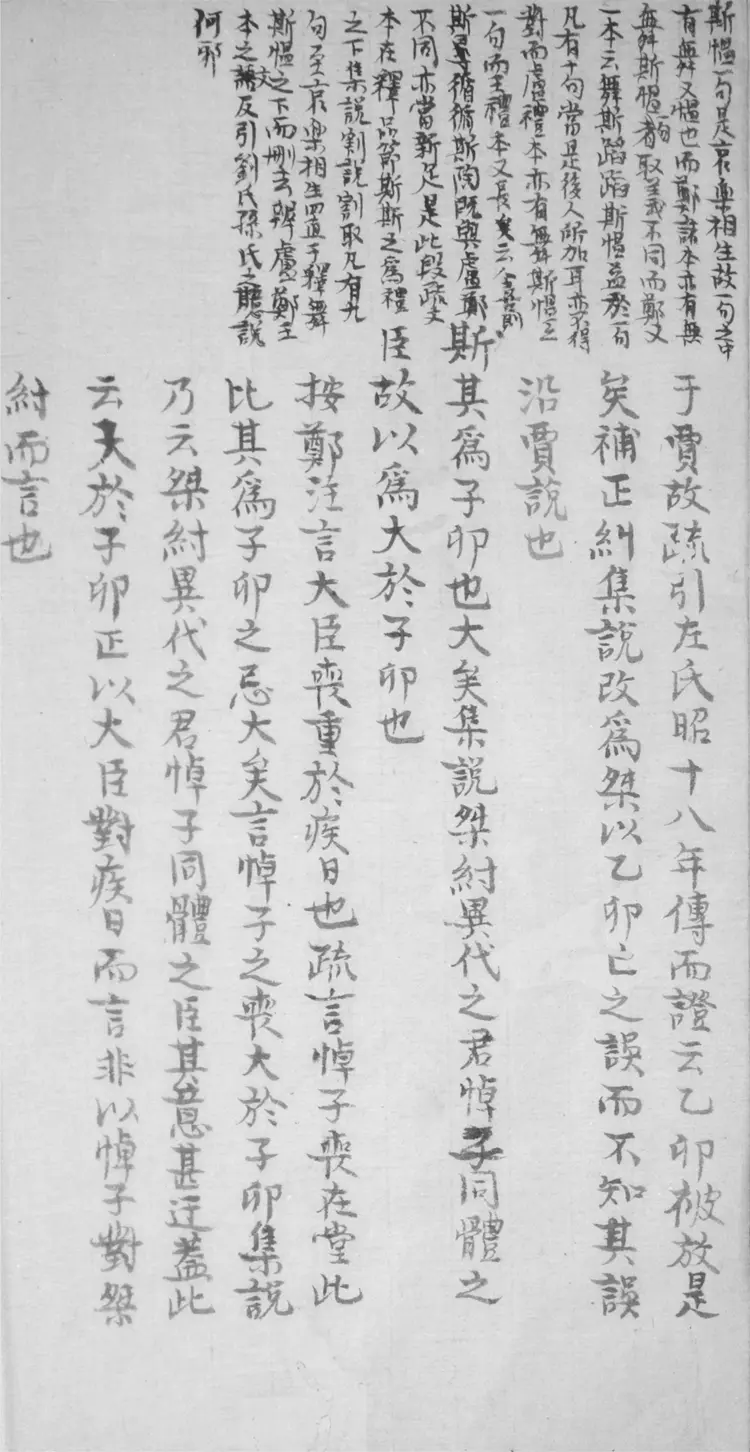 斯愠一句是哀樂相生故一句之中
有舞又愠也而鄭諸本亦有無
舞斯愠者取義不同而鄭又
一本云舞斯蹈蹈斯愠益於一句
凡有十句當是後人所加耳亦不得
對而盧禮本亦有舞斯愠之
一句而王禮本又長云人喜則
斯循循斯陶既與盧鄭
不同亦當新足是此段疏文
本在釋品節斯斯之爲禮
之下集說割說割取凡有九
句至哀樂相生四直于釋舞
斯愠之下而刪去辨盧鄭王
本之文反引劉氏孫氏之說
何邪
于賈故疏引左氏昭十八年傳而證云乙卯被放是
矣補正糾集說改爲桀以乙卯亡之誤而不知其誤
沿賈說也
斯其爲子卯也大矣集說桀紂異代之君悼子同體之
臣故以爲大於子卯也
按鄭注言大臣喪重於疾日也疏言悼子喪在堂此
比其爲子卯之忌大矣言悼子之喪大於子卯集說
乃云桀紂異代之君悼子同體之臣其意甚迂蓋此
云大於子卯正以大臣對疾日而言非以悼子對桀
紂而言也